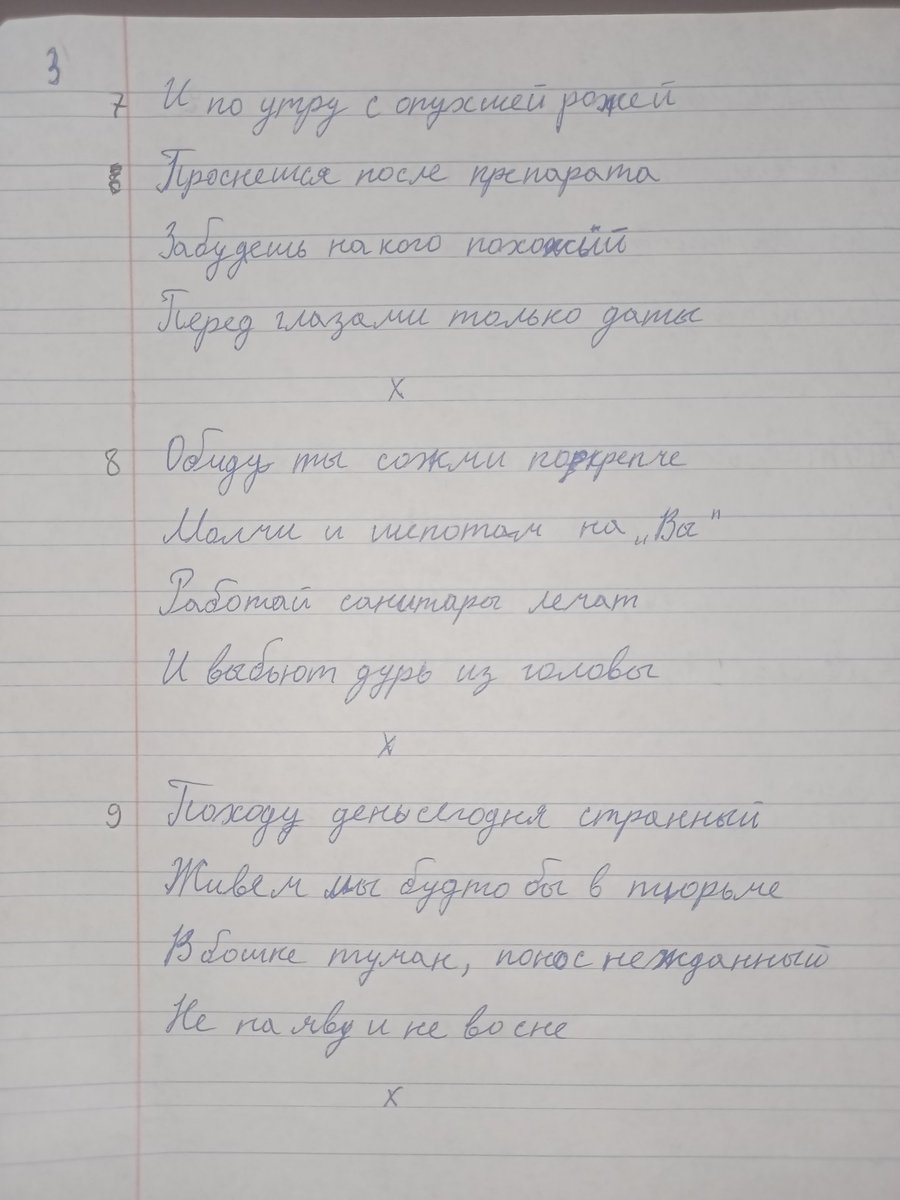 3
7 И по утру с опухшей рожей
Проснешся после препарата
Забудешь на кого похожый
Перед глазами только даты
х
8 Обиду ты сожми покрепче
Молчи и шепотам на „Вы"
Работай санитары лечат
И выбьют дурь из головы
х
9 Походу день сягодня странный
Живем мы будто бы в тюрьме
В бошке туман, понос нежданный
Не на яву и не во сне
х